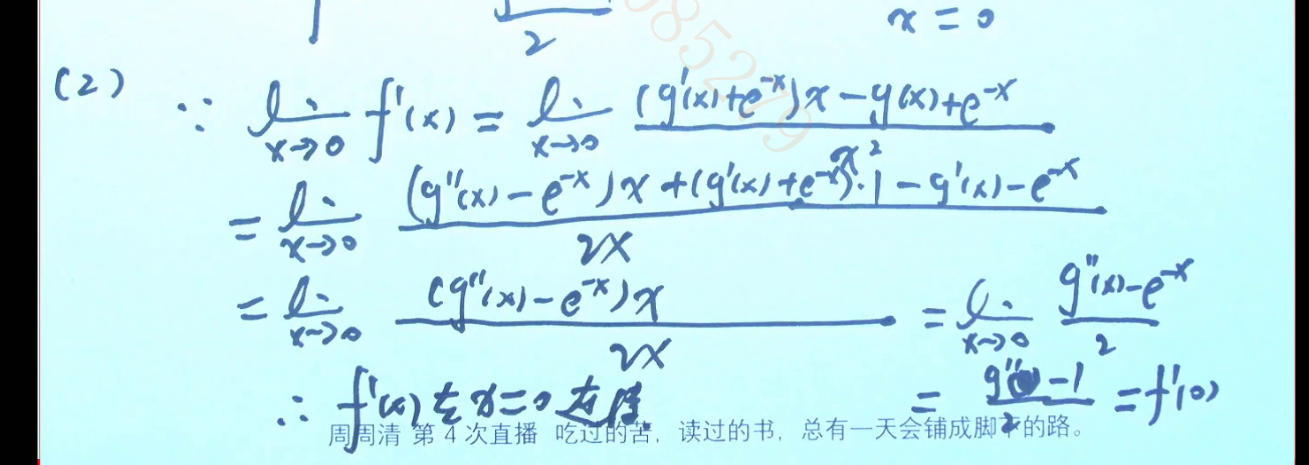 2
x = 0
(2) ∵ lim x→0 f'(x) = lim x→0 ((g'(x)+e^{-x})x - g(x)+e^{-x}) / x²
= lim x→0 ((g''(x)-e^{-x})x + (g'(x)+e^{-x})·1 - g'(x) - e^{-x}) / 2x
= lim x→0 ((g''(x)-e^{-x})x) / 2x = lim x→0 (g''(x)-e^{-x}) / 2
∴ f'(x) 在 x=0 连续. = (g''(0)-1) / 2 = f'(0)
周周清 第 4 次直播 吃过的苦，读过的书，总有一天会铺成脚下的路。